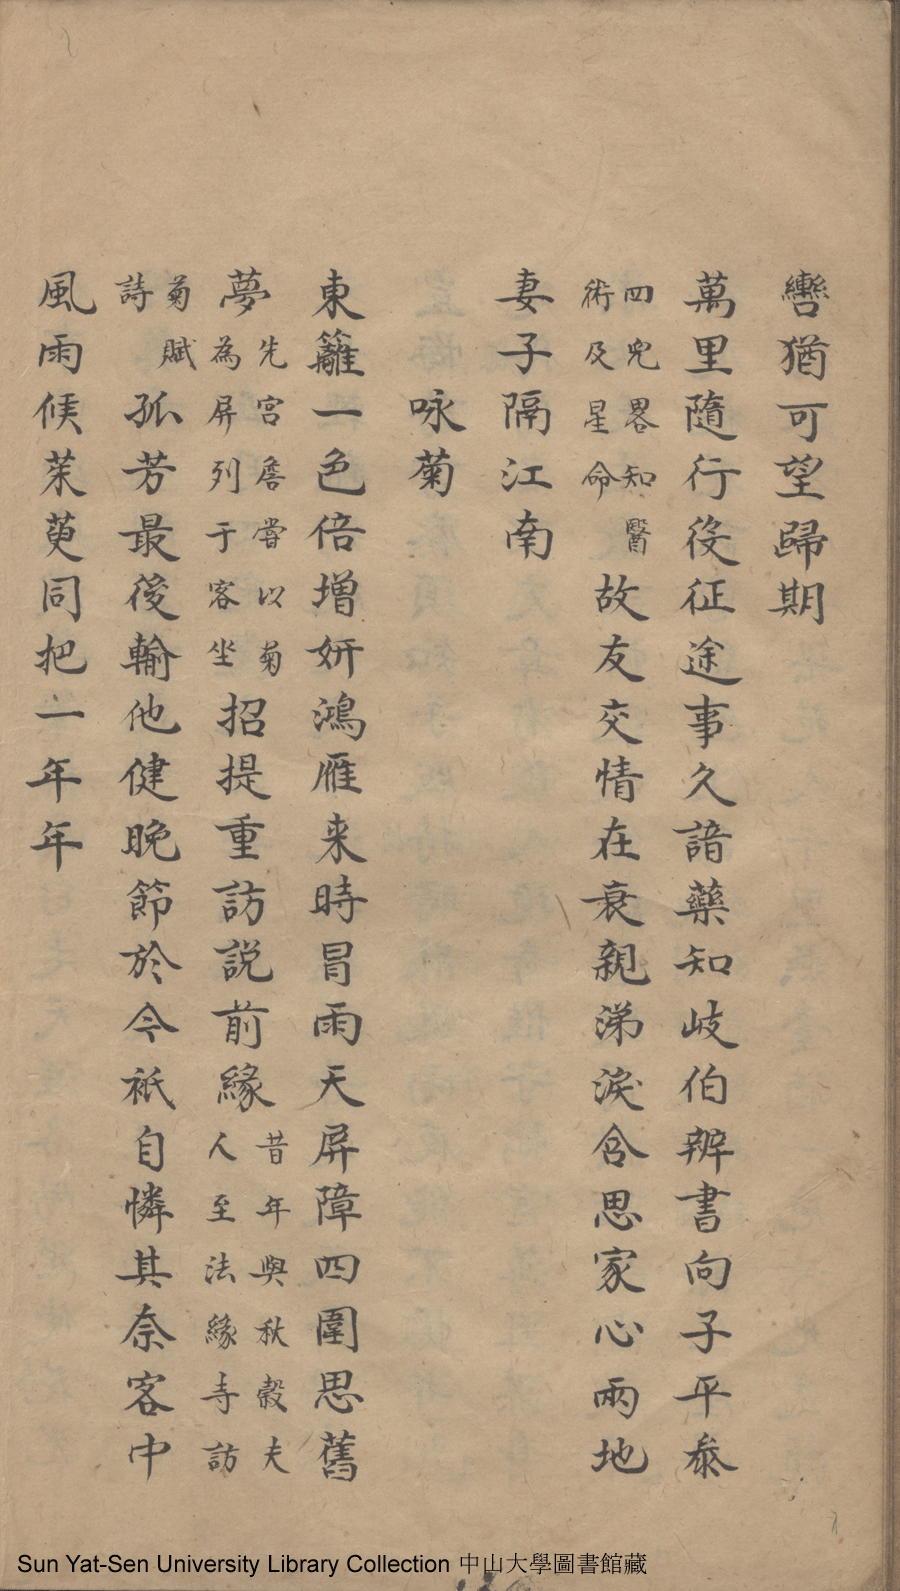 轡猶可望歸期
萬里隨行役征途事久諳藥知岐伯辨書向子平叅
四兒畧知醫
術及星命
故友交情在衰親涕淚含思家心兩地
妻子隔江南
咏菊
東籬一色倍增妍鴻雁来時冒雨天屏障四圍思舊
夢
先宫詹嘗以菊
為屏列于客坐
招提重訪説前緣
昔年與秋穀夫
人至法緣寺訪
菊賦
詩
孤芳最後輸他健晚節於今祇自憐其奈客中
風雨候茱萸同把一年年
Sun Yat-Sen University Library Collection 中山大學圖書館藏